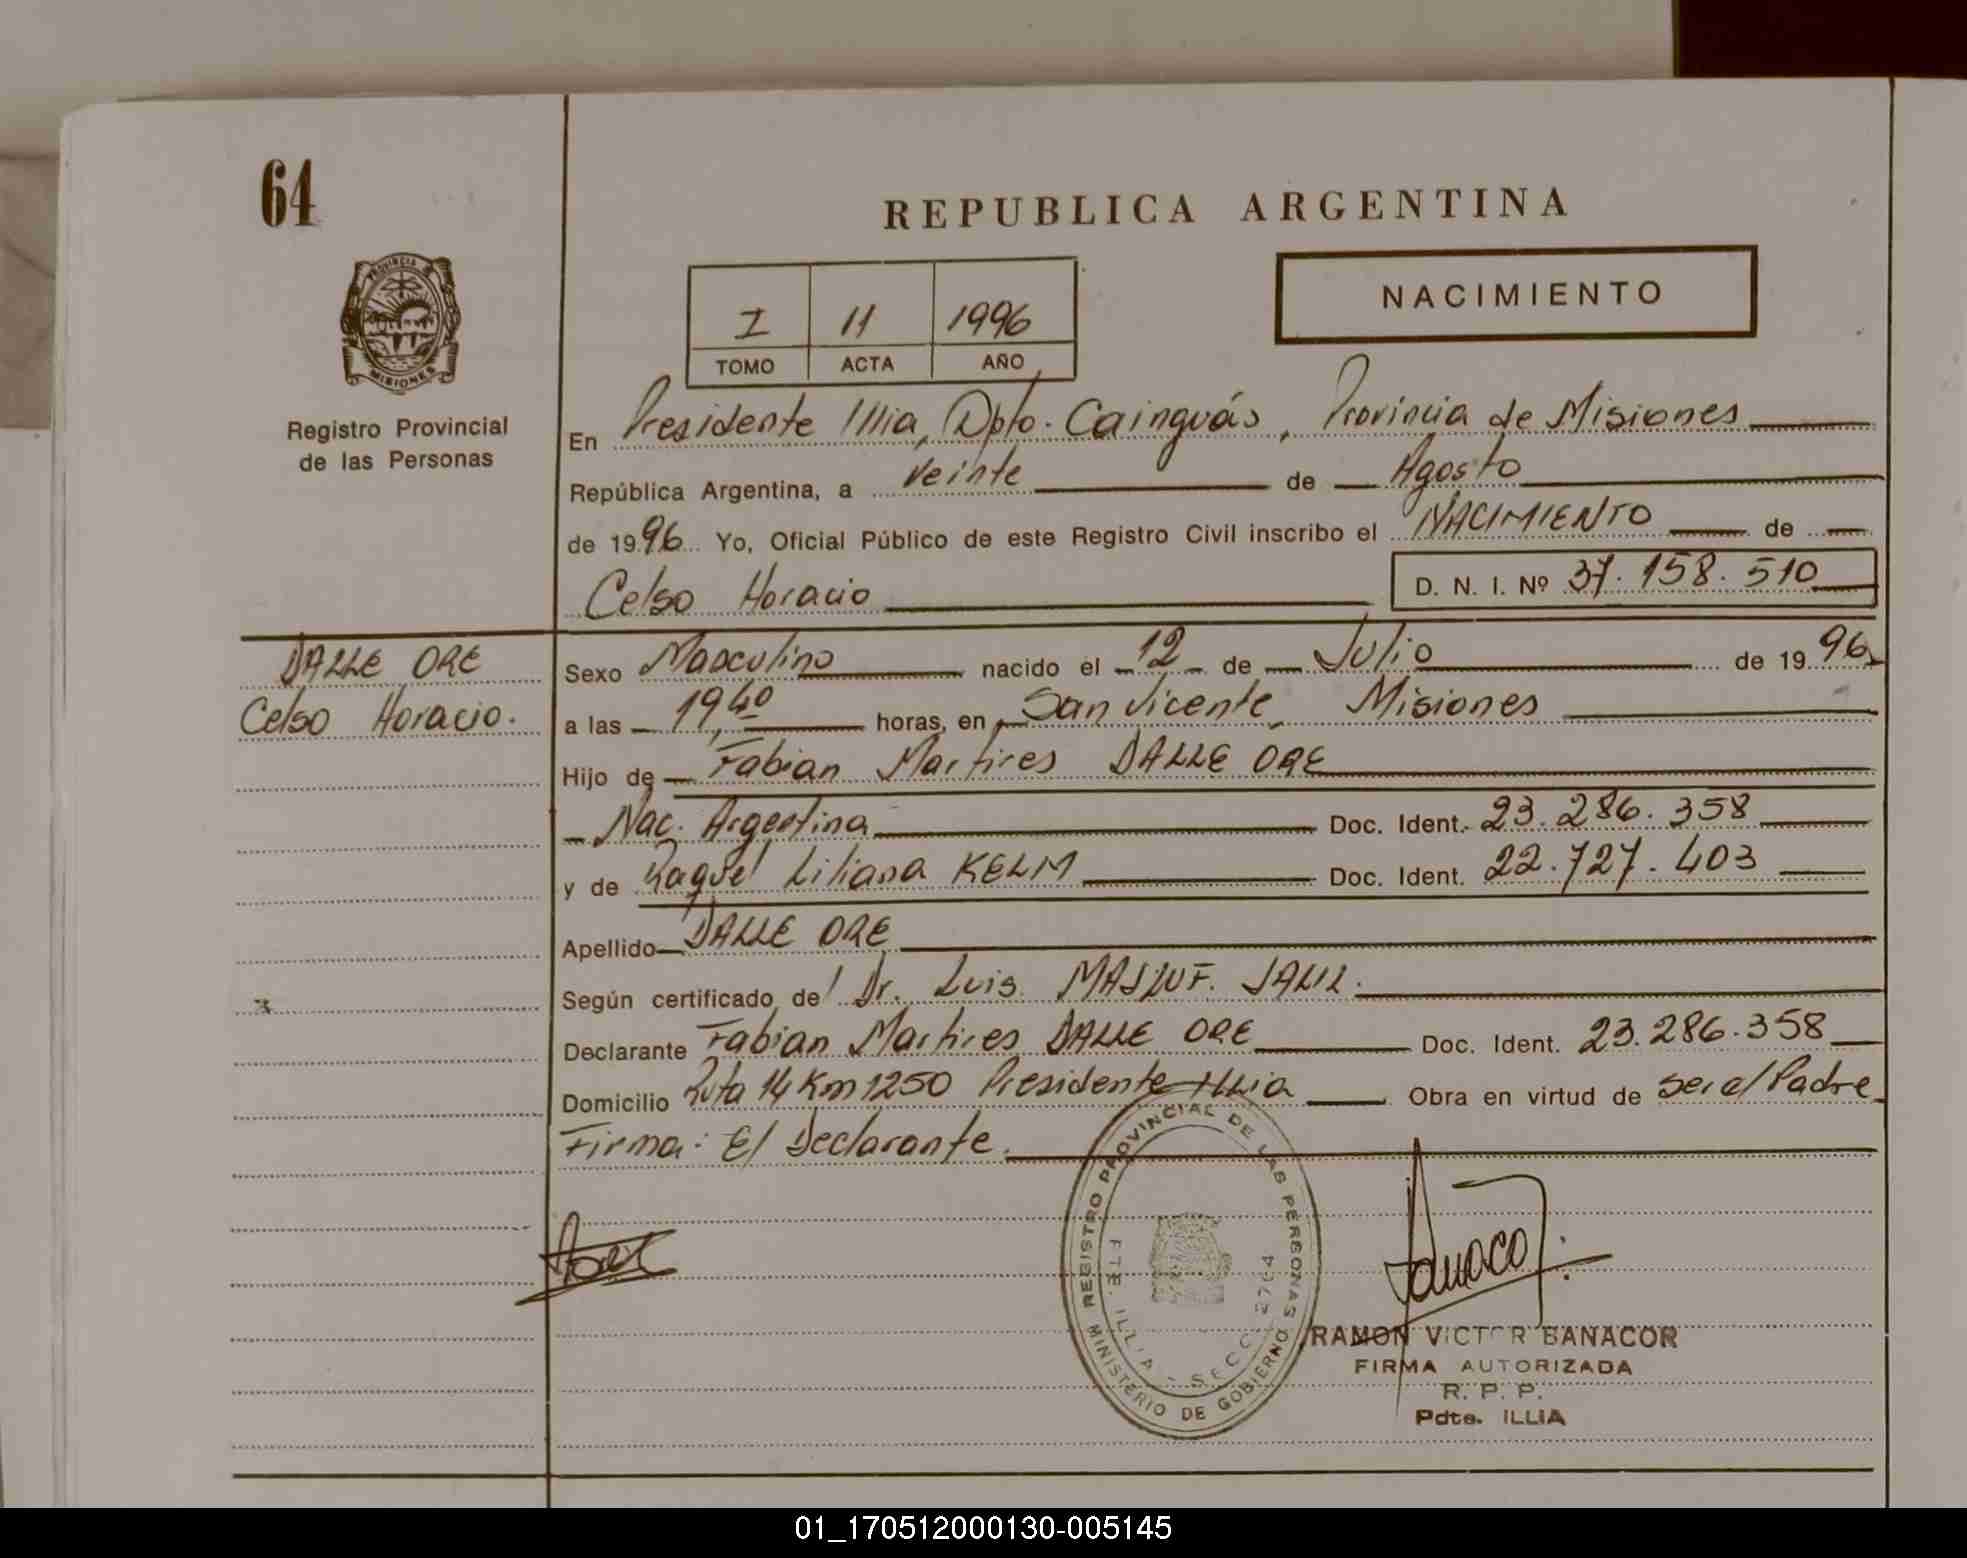 64
REPUBLICA ARGENTINA
PROVINCIA DE
MISIONES
Registro Provincial
de las Personas
I 11 1996
TOMO ACTA AÑO
NACIMIENTO
En Presidente Illia, Dpto. Cainguás, Provincia de Misiones
República Argentina, a veinte de Agosto
de 1996 Yo, Oficial Público de este Registro Civil inscribo el NACIMIENTO de
Celso Horacio D. N. I. Nº 37.158.510
DALLE ORE
Celso Horacio.
Sexo Masculino nacido el 12 de Julio de 1996
a las 19,40 horas, en San Vicente, Misiones
Hijo de Fabian Martires DALLE ORE
Nac. Argentina Doc. Ident. 23.286.358
y de Raquel Liliana KELM Doc. Ident. 22.727.403
Apellido DALLE ORE
Según certificado de Dr. Luis MASLUF. JALIL.
Declarante Fabian Martires DALLE ORE Doc. Ident. 23.286.358
Domicilio Ruta 14 Km 1250 Presidente Illia Obra en virtud de ser el Padre
Firma: El Declarante.
REGISTRO PROVINCIAL DE LAS PERSONAS
MINISTERIO DE GOBIERNO
PTE. ILLIA - SECC. 2764
RAMON VICTOR BANACOR
FIRMA AUTORIZADA
R. P. P.
Pdte. ILLIA
01_170512000130-005145